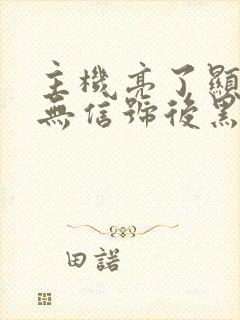 主機亮了顯
無信號後黑
田諾